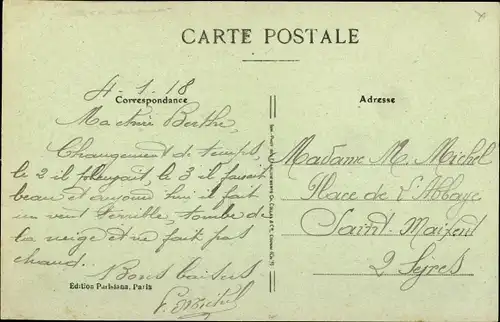 CARTE POSTALE
4-1-18
Correspondance
Ma chère Berthe,
Changement de temps,
le 2 il pleuvait, le 3 il faisait
beau et aujourd'hui il fait
un vent terrible, tombe de
la neige et ne fait pas
chaud.
Bons baisers
Édition Parisiana, Paris
Adresse
Madame M. Michel
Place de l'Abbaye
Saint-Maixent
2 Sèvres